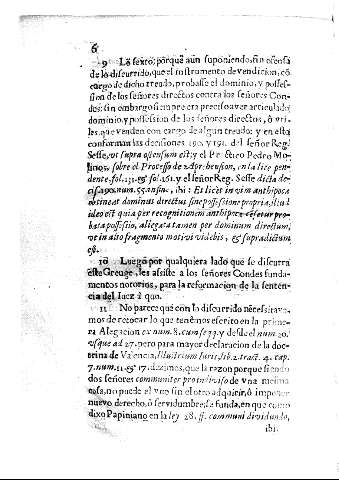 6
9 Lo sexto; porque aun suponiendo, sin ofensa
de lo discurrido, que el instrumento de vendicion, cõ
cargo de dicho treudo, probasse el dominio, y posses-
sion de los señores directos contra los señores Con-
des; sin embargo siempre era preciso aver articulado
dominio, y possession de los señores directos, ò vti-
les, que venden con cargo de algun treudo: y en esto
conforman las decisiones 190. y 191. del señor Reg.
Sesse, vt supra ostensum est; y el Practico Pedro Mo-
linos, sobre el Processo de Aprehension, en la lite pen-
dente, fol. 151. y el señor Reg. Sesse dicta de-
cis. 190. num. 55. in fin. ibi: Et licèt in vim anthipoca
obtineat dominus directus sine possessione propria, illud
ideò est quia per recognitionem anthipoca censetur pro-
bata possessio, allegata tamen per dominum directum,
vt in alto fragmento motivi videbis, & supradictum
est.
10 Luego por qualquiera lado que se discurra
este Greuge, les assiste à los señores Condes funda-
mentos notorios, para la reformacion de la senten-
cia del Iuez à quo.
11 No parece que con lo discurrido necessitava-
mos de retocar lo que tenèmos escrito en la prime-
ra Alegacion ex num. 8. cum seqq. y desde el num. 20.
vsque ad 27. pero para mayor declaracion de la doc-
trina de Valencia, Illustrium Iuris, lib. 2. tract. 4. cap.
7. num. 11. & 17. dezimos, que la razon porque siendo
dos señores communiter pro indiviso de vna mesma
cosa, no puede el vno sin el otro adquirir, ò imponer
nuevo derecho, ò servidumbre; la funda, en que como
dixo Papiniano en la ley 28. ff. communi dividundo,
ibi: